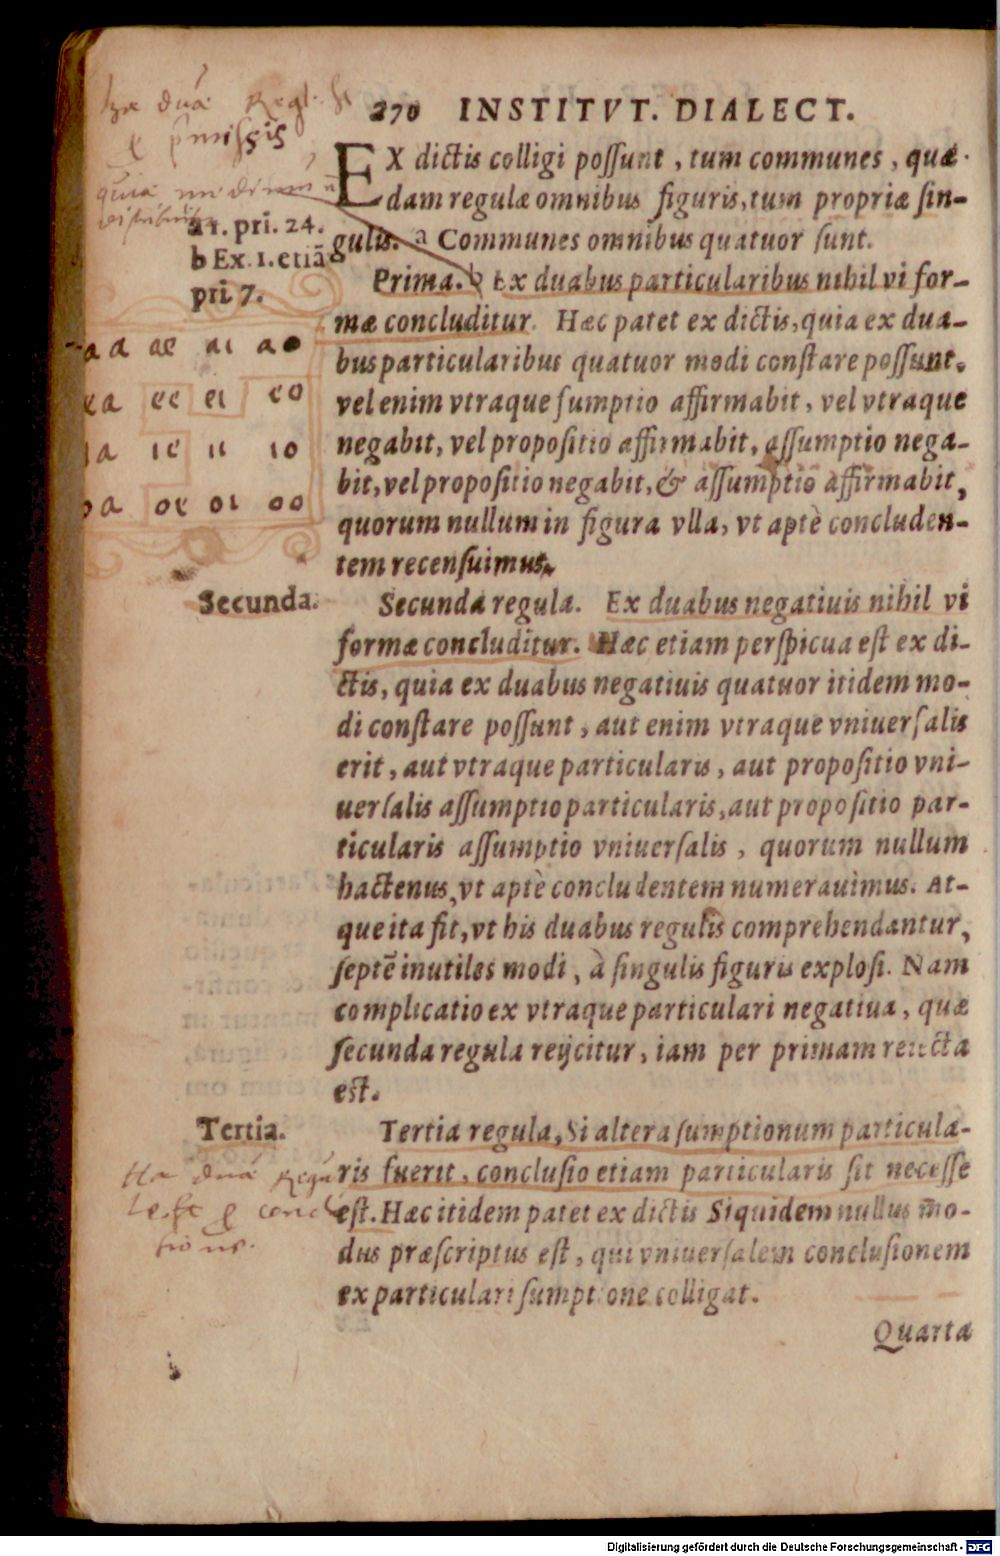 270 INSTITVT. DIALECT.
EX dictis colligi possunt, tum communes, quæ-
dam regulæ omnibus figuris, tum propriæ sin-
gulis. a Communes omnibus quatuor sunt.
a 1. pri. 24.
b Ex. 1. etiā
pri. 7.
Prima. b Ex duabus particularibus nihil vi for-
mæ concluditur. Hæc patet ex dictis, quia ex dua-
bus particularibus quatuor modi constare possunt.
vel enim vtraque sumptio affirmabit, vel vtraque
negabit, vel propositio affirmabit, assumptio nega-
bit, vel propositio negabit, & assumptio affirmabit,
quorum nullum in figura vlla, vt aptè concluden-
tem recensuimus.
aa ae ai ao
ea ee ei eo
ia ie ii io
oa oe oi oo
Secunda.
Secunda regula. Ex duabus negatiuis nihil vi
formæ concluditur. Hæc etiam perspicua est ex di-
ctis, quia ex duabus negatiuis quatuor itidem mo-
di constare possunt, aut enim vtraque vniuersalis
erit, aut vtraque particularis, aut propositio vni-
uersalis assumptio particularis, aut propositio par-
ticularis assumptio vniuersalis, quorum nullum
hactenus, vt aptè concludentem numerauimus. At-
que ita fit, vt his duabus regulis comprehendantur,
septē inutiles modi, à singulis figuris explosi. Nam
complicatio ex vtraque particulari negatiua, quæ
secunda regula reijcitur, iam per primam reiecta
est.
Tertia.
Tertia regula, Si altera sumptionum particula-
ris fuerit, conclusio etiam particularis sit necesse
est. Hæc itidem patet ex dictis Siquidem nullus mo-
dus præscriptus est, qui vniuersalem conclusionem
ex particulari sumptione colligat.
Quarta
Digitalisierung gefördert durch die Deutsche Forschungsgemeinschaft - DFG